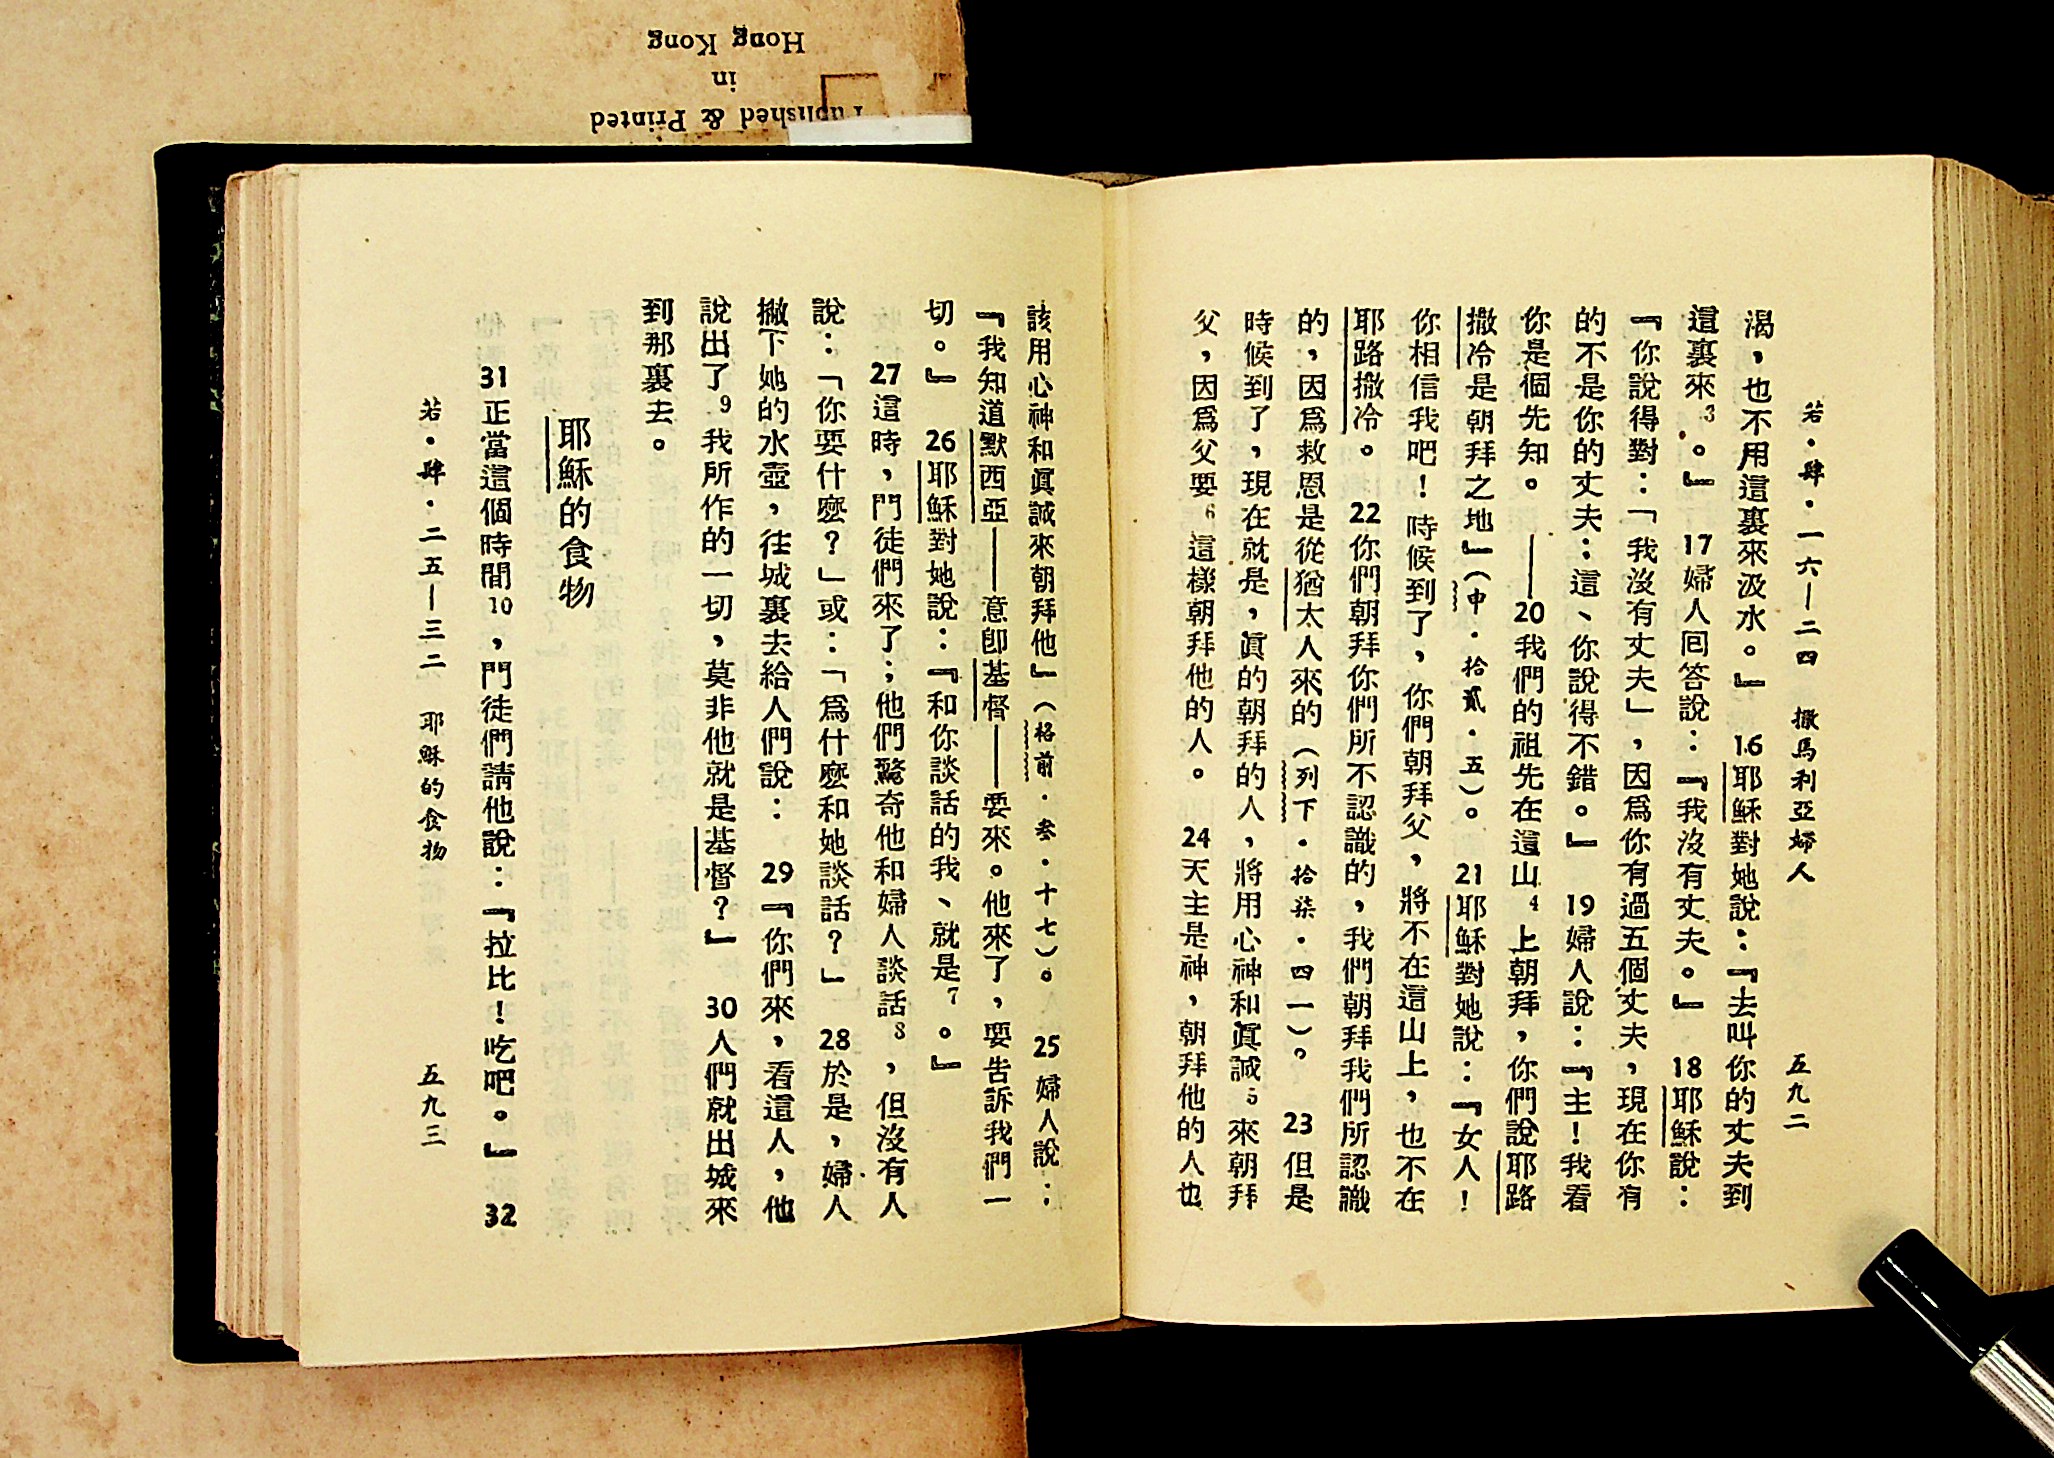 Published & Printed
in
Hong Kong
若．肆．一六－二四 撒馬利亞婦人 五九二
渴，也不用這裏來汲水。』 16耶穌對她說：『去叫你的丈夫到
這裏來3。』 17婦人囘答說：『我沒有丈夫。』 18耶穌說：
『你說得對：「我沒有丈夫」，因爲你有過五個丈夫，現在你有
的不是你的丈夫：這、你說得不錯。』 19婦人說：『主！我看
你是個先知。——20我們的祖先在這山4上朝拜，你們說耶路
撒冷是朝拜之地』（申．拾貳．五）。 21耶穌對她說：『女人！
你相信我吧！時候到了，你們朝拜父，將不在這山上，也不在
耶路撒冷。 22你們朝拜你們所不認識的，我們朝拜我們所認識
的，因爲救恩是從猶太人來的（列下．拾柒．四一）？ 23但是
時候到了，現在就是，眞的朝拜的人，將用心神和眞誠5來朝拜
父，因爲父要6這樣朝拜他的人。 24天主是神，朝拜他的人也
該用心神和眞誠來朝拜他』（格前．叁．十七）。 25婦人說：
『我知道默西亞——意卽基督——要來。他來了，要告訴我們一
切。』 26耶穌對她說：『和你談話的我、就是7。』
27這時，門徒們來了；他們驚奇他和婦人談話8，但沒有人
說：「你要什麼？」或：「爲什麼和她談話？」 28於是，婦人
撇下她的水壺，往城裏去給人們說： 29『你們來，看這人，他
說出了9我所作的一切，莫非他就是基督？』 30人們就出城來
到那裏去。
耶穌的食物
31正當這個時間10，門徒們請他說：『拉比！吃吧。』 32
若．肆．二五－三二 耶穌的食物 五九三